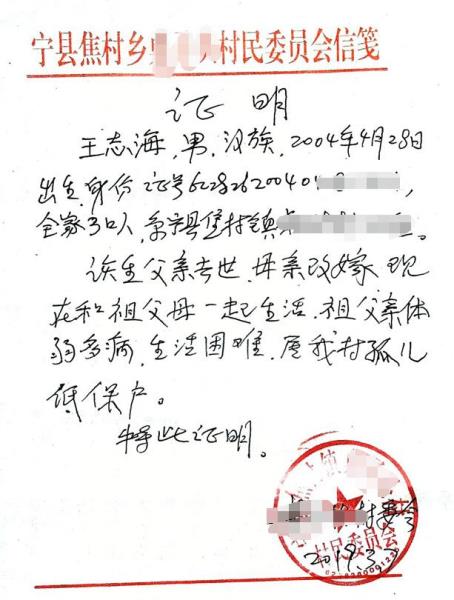 宁县焦村乡 村民委员会信笺
证 明
王志海,男,汉族,2004年4月28日
出生,身份证号62282620040
全家3口人,系宁县焦村镇
该生父亲去世,母亲改嫁,现
在和祖父母一起生活,祖父亲体
弱多病,生活困难,属我村孤儿
低保户。
特此证明。
村委会
2019.3.2
村民委员会